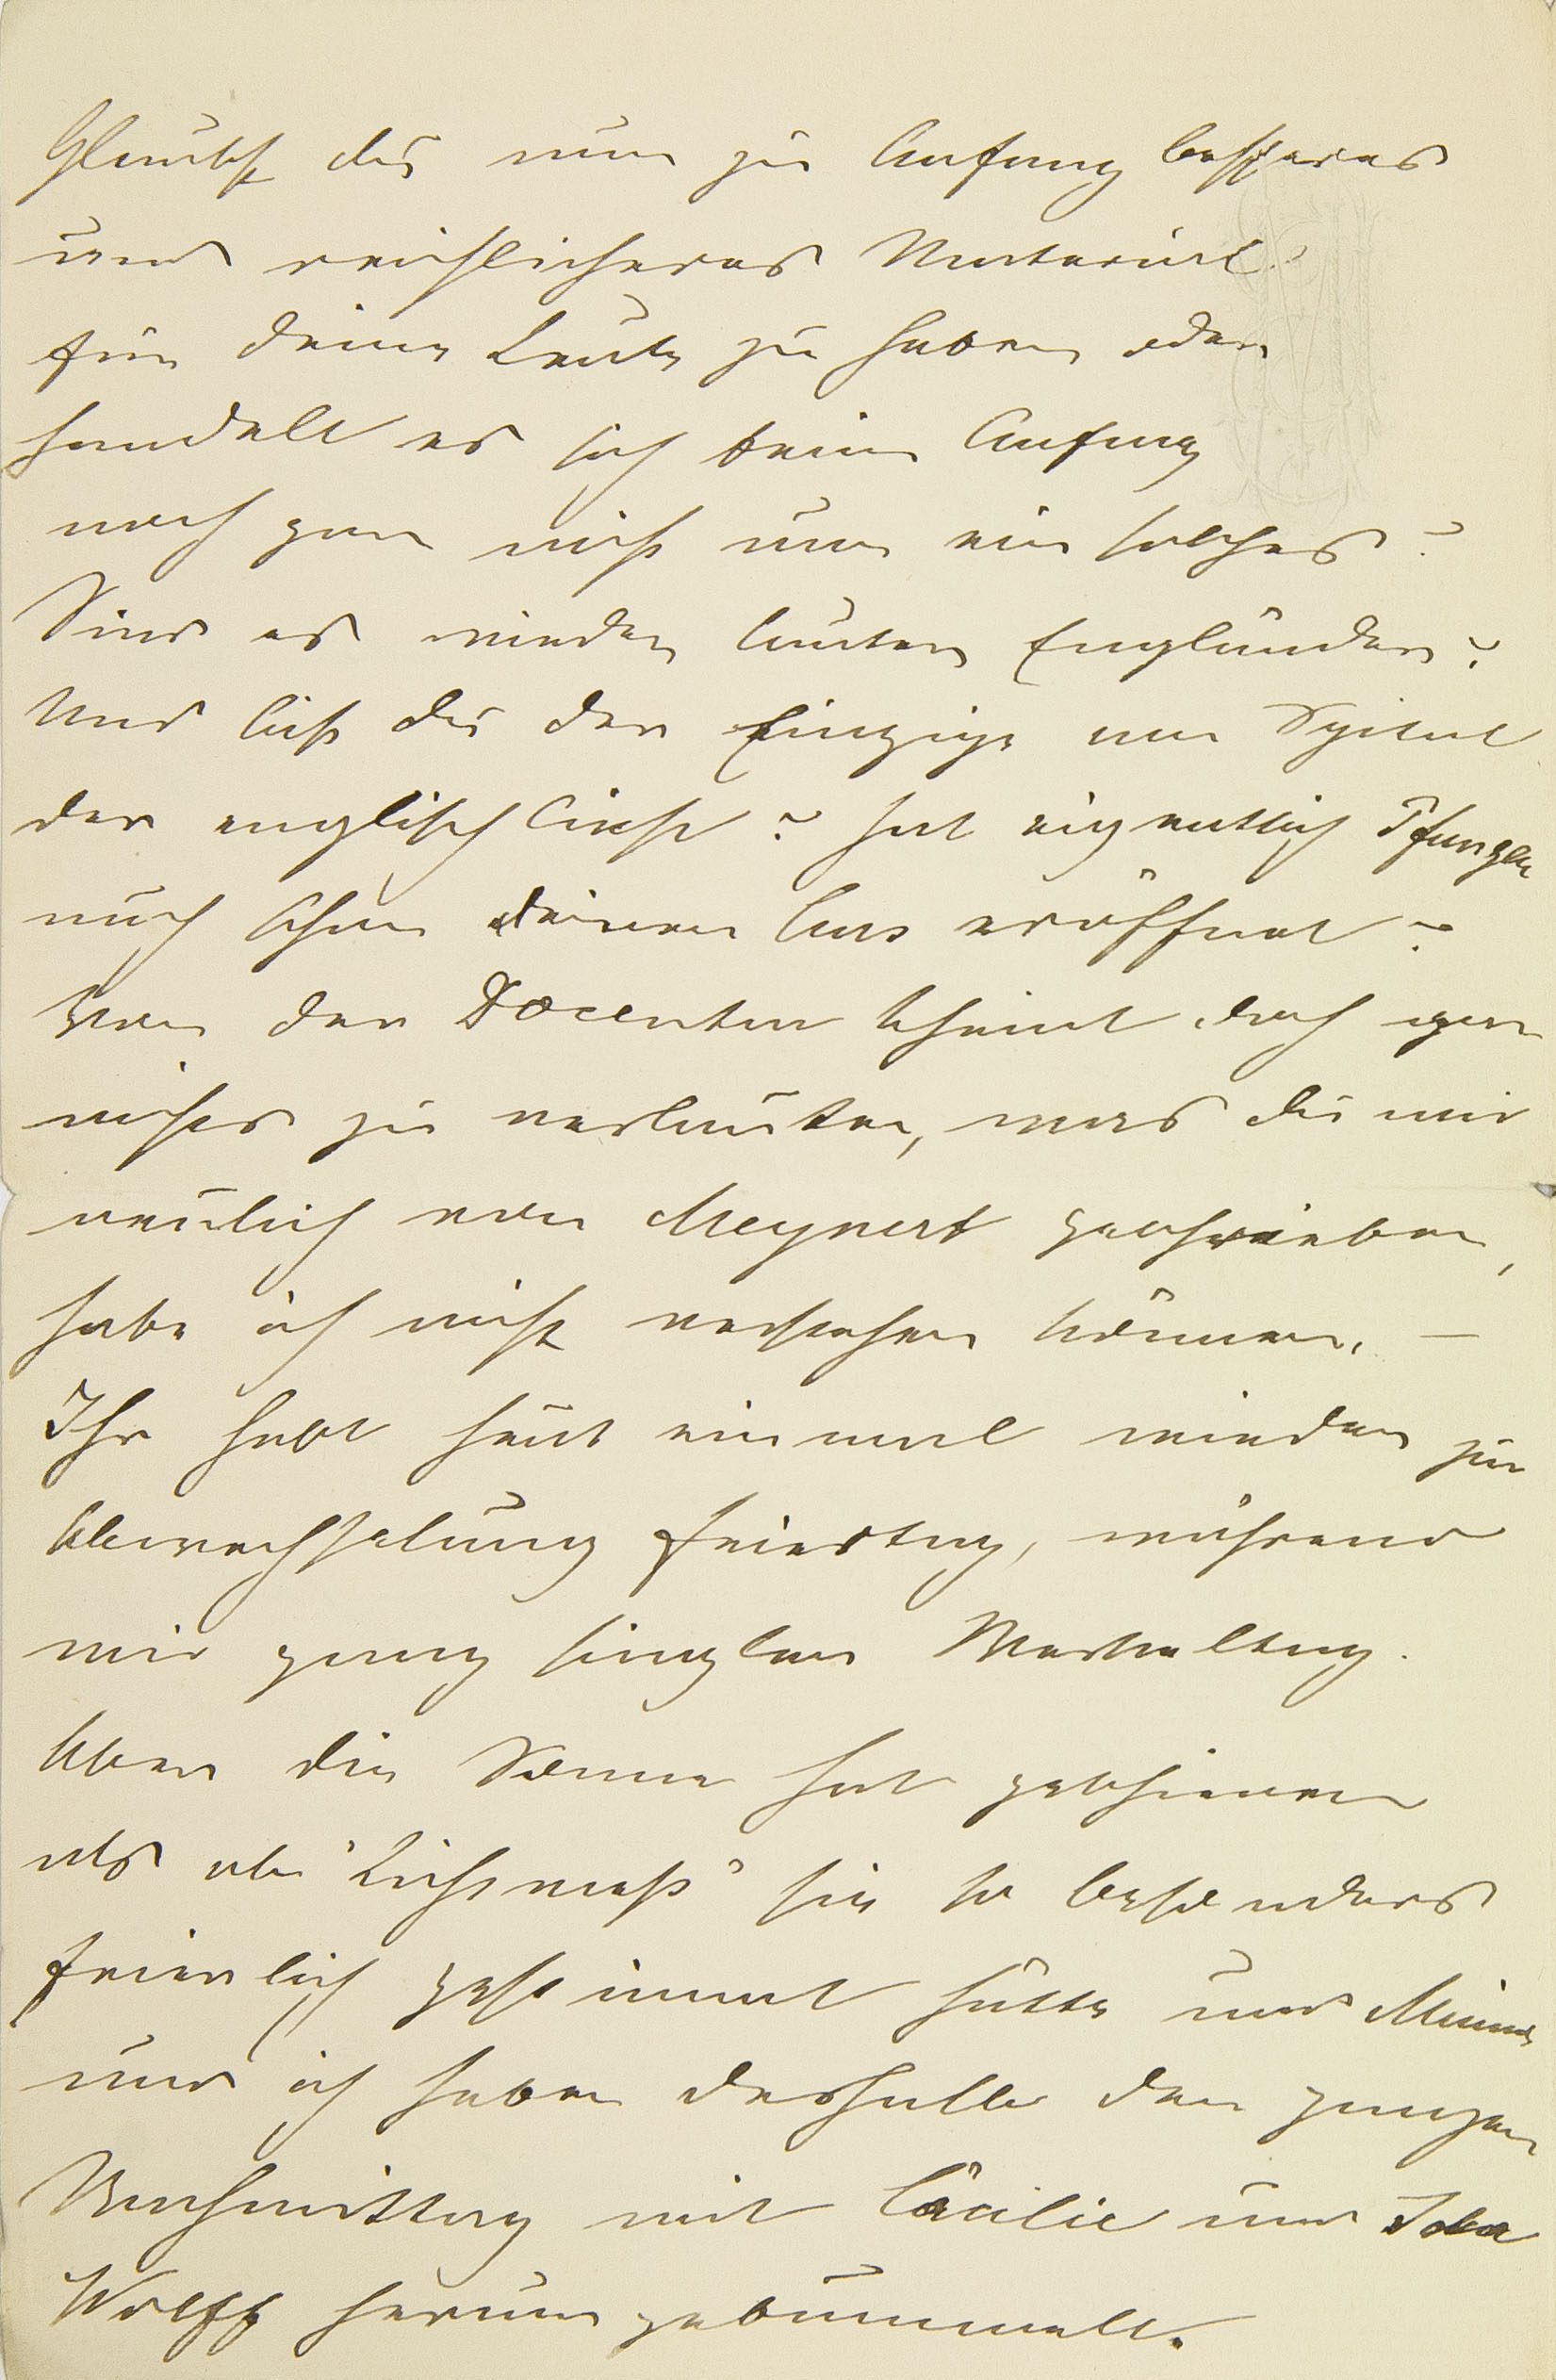 Glaubst du nun zu Anfang besseres
und reichlicheres Material
für deine Leute zu haben oder
handelt es sich beim Anfang
noch gar nicht um ein solches?
Sind es wieder lauter Engländer?
Und bist du der Einzige im Spital
der englisch liest? hat eigentlich Pfungen
auch schon seinen Curs eröffnet?
Von der Docentur scheint doch gar
nichts zu verlauten, was du mir
neulich von Meynert geschrieben,
habe ich nicht verstehen können. –
Ihr habt heut einmal wieder zur
Abwechselung Feiertag, während
wir ganz simplen Werkeltag.
Aber die Sonne hat geschienen
als ob "Lichtmeß" sie so besonders
feierlich gestimmt hätte und Minna
und ich haben deshalb den ganzen
Nachmittag mit Cäcilie und Ida
Wolff herum gebummelt.